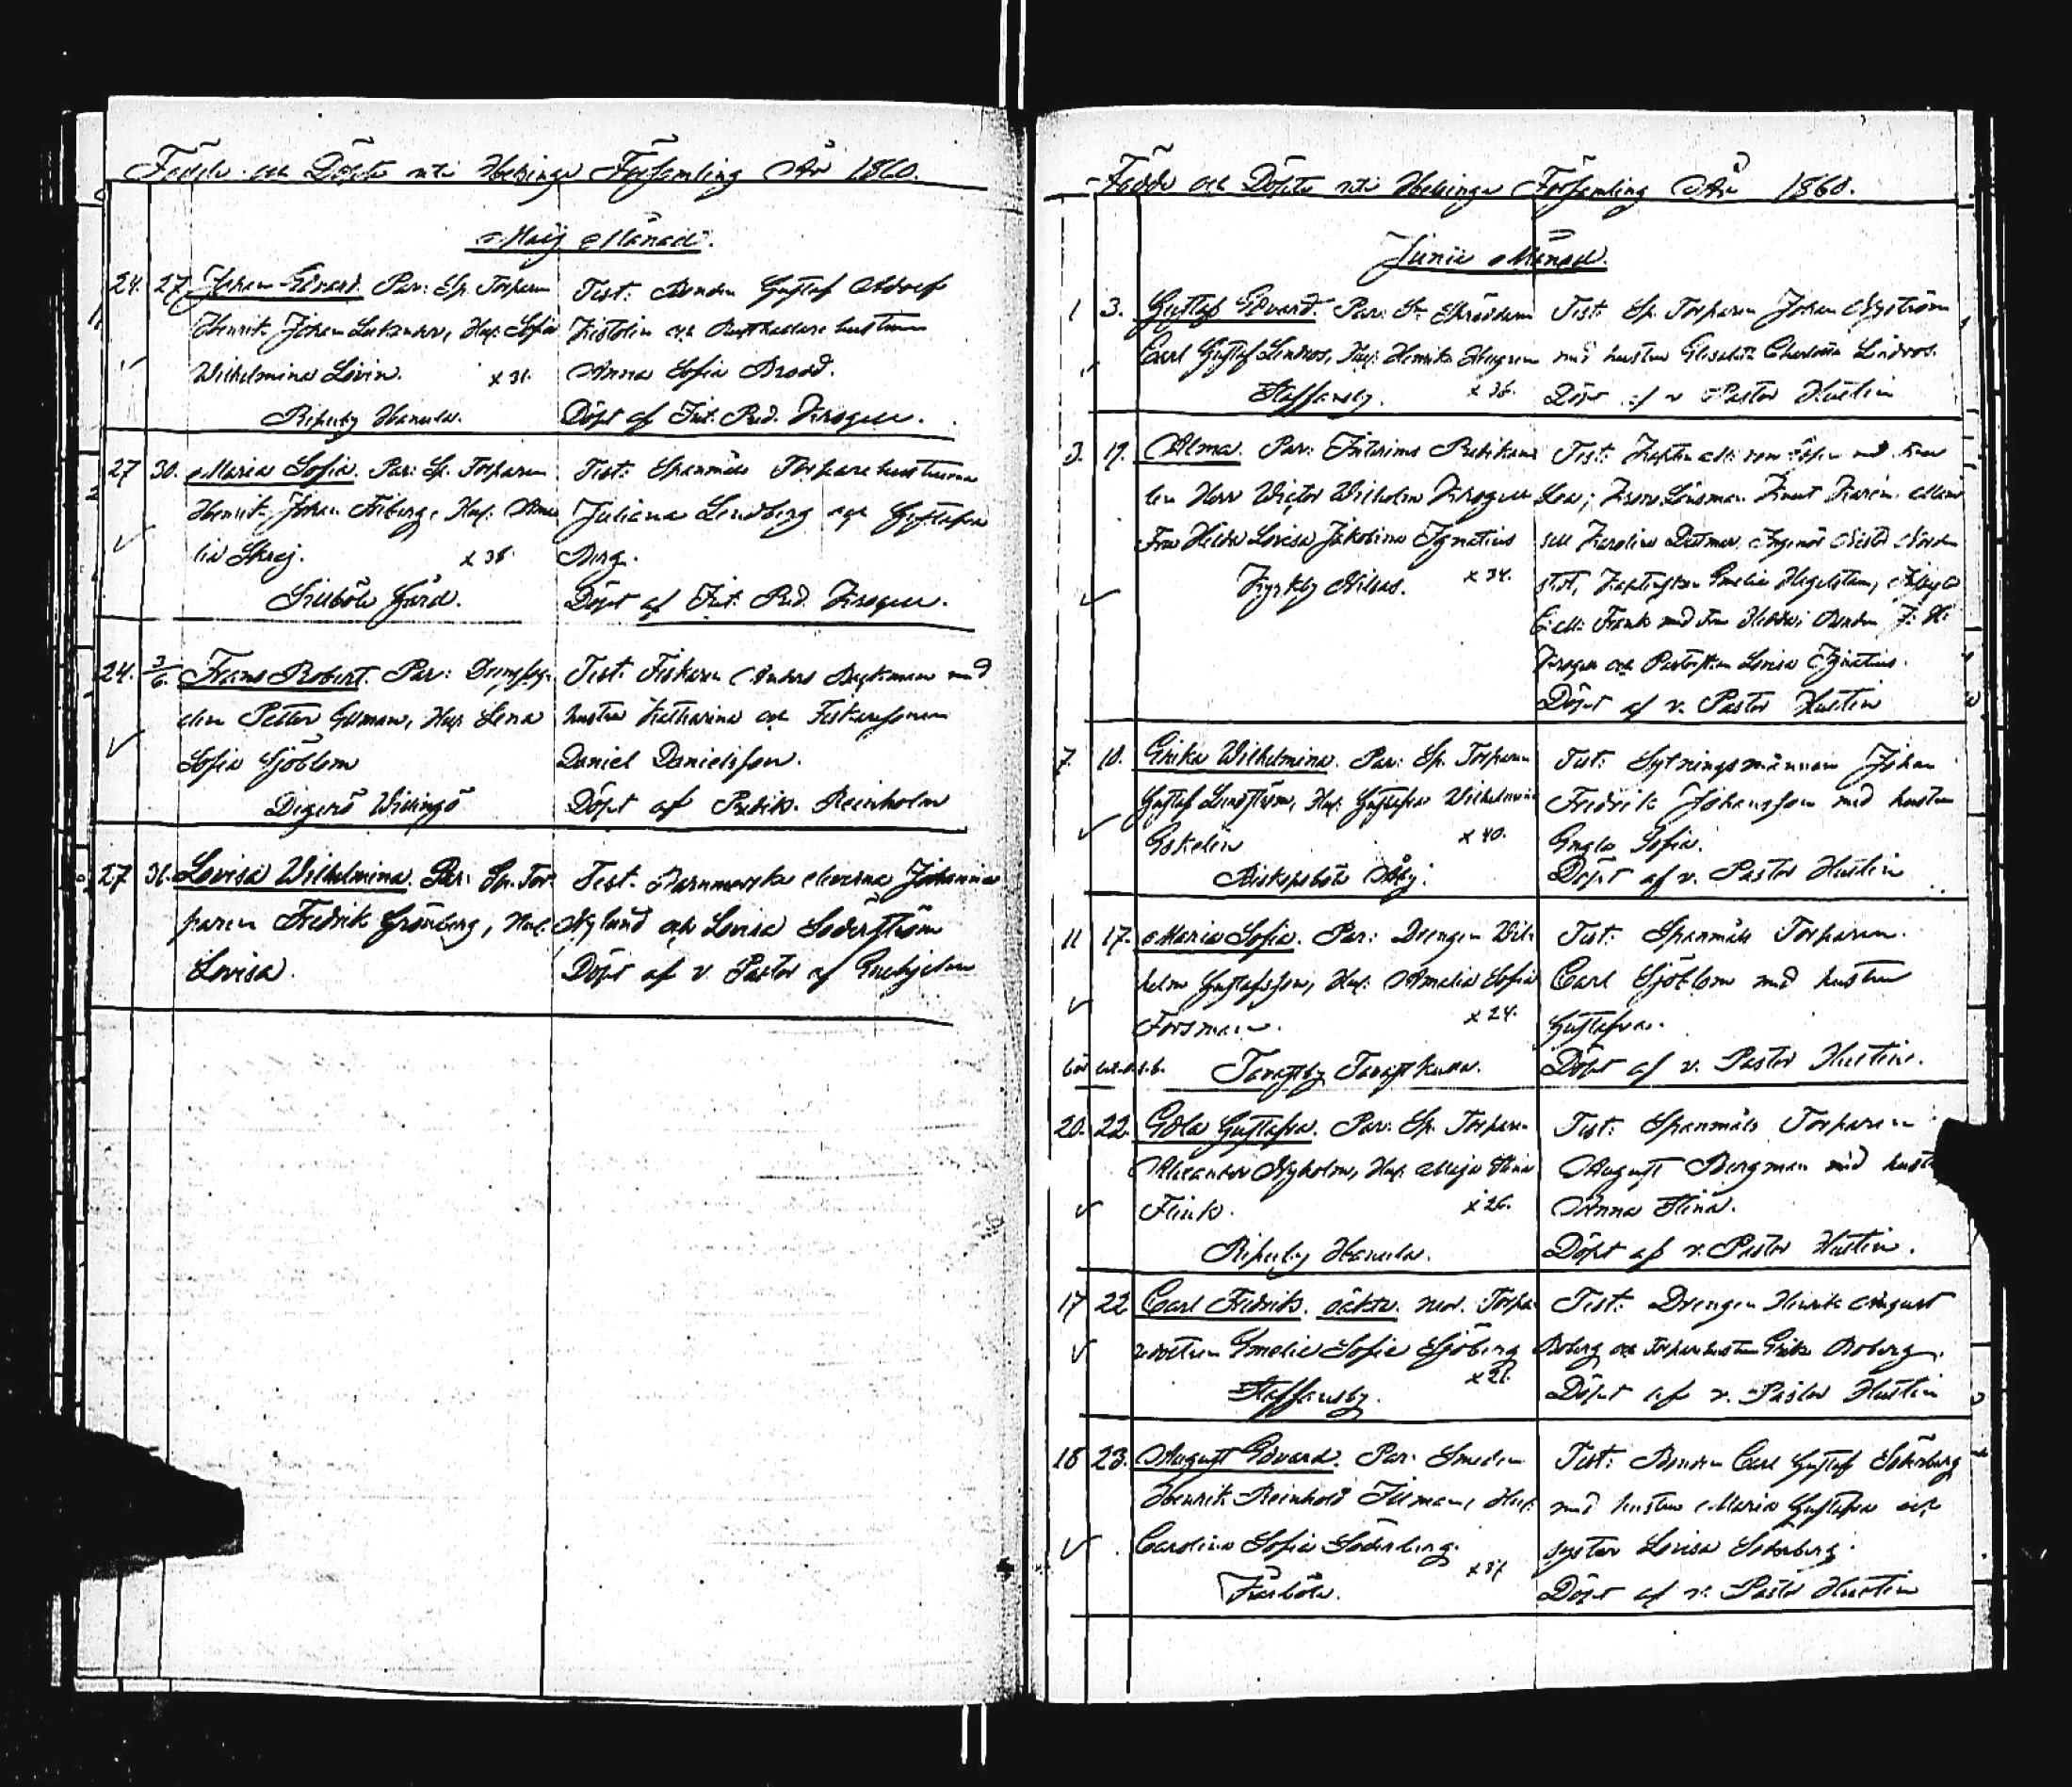 Födde och Döpte uti Helsinge Församling År 1860.
Maij Månad.
24. 27 Johan Edvard. Par: Sp. Torparen
Henrik Johan Lukander, Hu: Sofia
Wilhelmina Lovin. x 31.
Biskby Hanula.
Test: Bonden Gustaf Adolf
och Rusthållare hustrun
Anna Sofia Brodd.
Döpt af Int. Pred. Krogell.
27 30. Maria Sofia. Par: Sp. Torparen
Henrik Johan Friberg, Hu: Ama
lia Skog. x 36.
Gård.
Test: Spanmåls Torpare hustrurna
Juliana Lindberg och Gustafva
Berg.
Döpt af Int. Pred. Krogell.
24. 3/6. Frans Robert. Par: Drengfog
den Petter Edman, Hu: Lena
Sofia Sjöblom
Degerö Willingö
Test: Fiskaren Anders Beckman med
hustru Katharina och Fiskaresonen
Daniel Danielsson.
Döpt af Predik. Reinholm
27 31. Lovisa Wilhelmina. Par: Sp. Tor
paren Fredrik Grönberg, Hu:
Lovisa.
Test. Barnmorske eleverna Johanna
Nylund och Lovisa Söderström
Döpt af v. Pastor af Enehjelm
Födde och Döpte uti Helsinge Församling År 1860.
Junii Månad.
1 3. Gustaf Edvard. Par: Sn Skräddaren
Carl Gustaf Lindros, Hu: Henrika
Staffansby. x 36.
Test: Sp. Torparen Johan Nyström
med hustru Elisabeth Charlotta Lindros.
Döpt af v. Pastor Hustin
3. 17. Alma. Par: Interims Predikan
ten Herr Victor Wilhelm Krogell
Fru Hilda Lovisa Jakobina Ignatius
Kyrkby Nissas. x 34.
Test: med Fru
Lea; Krono Länsman Knut Mam
sell Karolina Ingeniör
Emelie
med Fru Bonden J. H.
Krogell och Lovisa Ignatius.
Döpt af v. Pastor Hustin
7. 10. Erika Wilhelmina. Par: Sp. Torparen
Gustaf Lundström, Hu: Gustafva Wilhelmina
Eskelin x 40.
Biskopsböle Åby.
Test: Sytningsmannen Johan
Fredrik Johansson med hustru
Engla Sofia.
Döpt af v. Pastor Hustin
11 17. Maria Sofia. Par: Drengen Wil
helm Gustafsson, Hu: Amalia Sofia
Forsman. x 24.
Tavastby Tavastkulla.
Test: Spanmåls Torparen
Carl Sjöblom med hustru
Gustafva.
Döpt af v. Pastor Hustin.
20. 22. Edla Gustafva. Par: Sp. Torparen
Alexander Nyholm, Hu: Maja Stina
Flink. x 26.
Hanula.
Test: Spanmåls Torparen
August Bergman med hust
Anna Stina.
Döpt af v. Pastor Hustin.
17 22 Carl Fredrik. oäkta. Mod. Torpa
redottren Emelie Sofie Sjöberg
Staffansby. x 21.
Test: Drengen Henrik August
Boberg och Torparhustrun Erika Boberg.
Döpt af v. Pastor Hustin
18 23. August Edvard. Par: Smeden
Henrik Reinhold Hu:
Carolina Sofia Söderberg.
x 37
Test: Bonden Carl Gustaf Söderberg
med hustru Maria Gustafva och
syster Lovisa Söderberg.
Döpt af v. Pastor Hustin